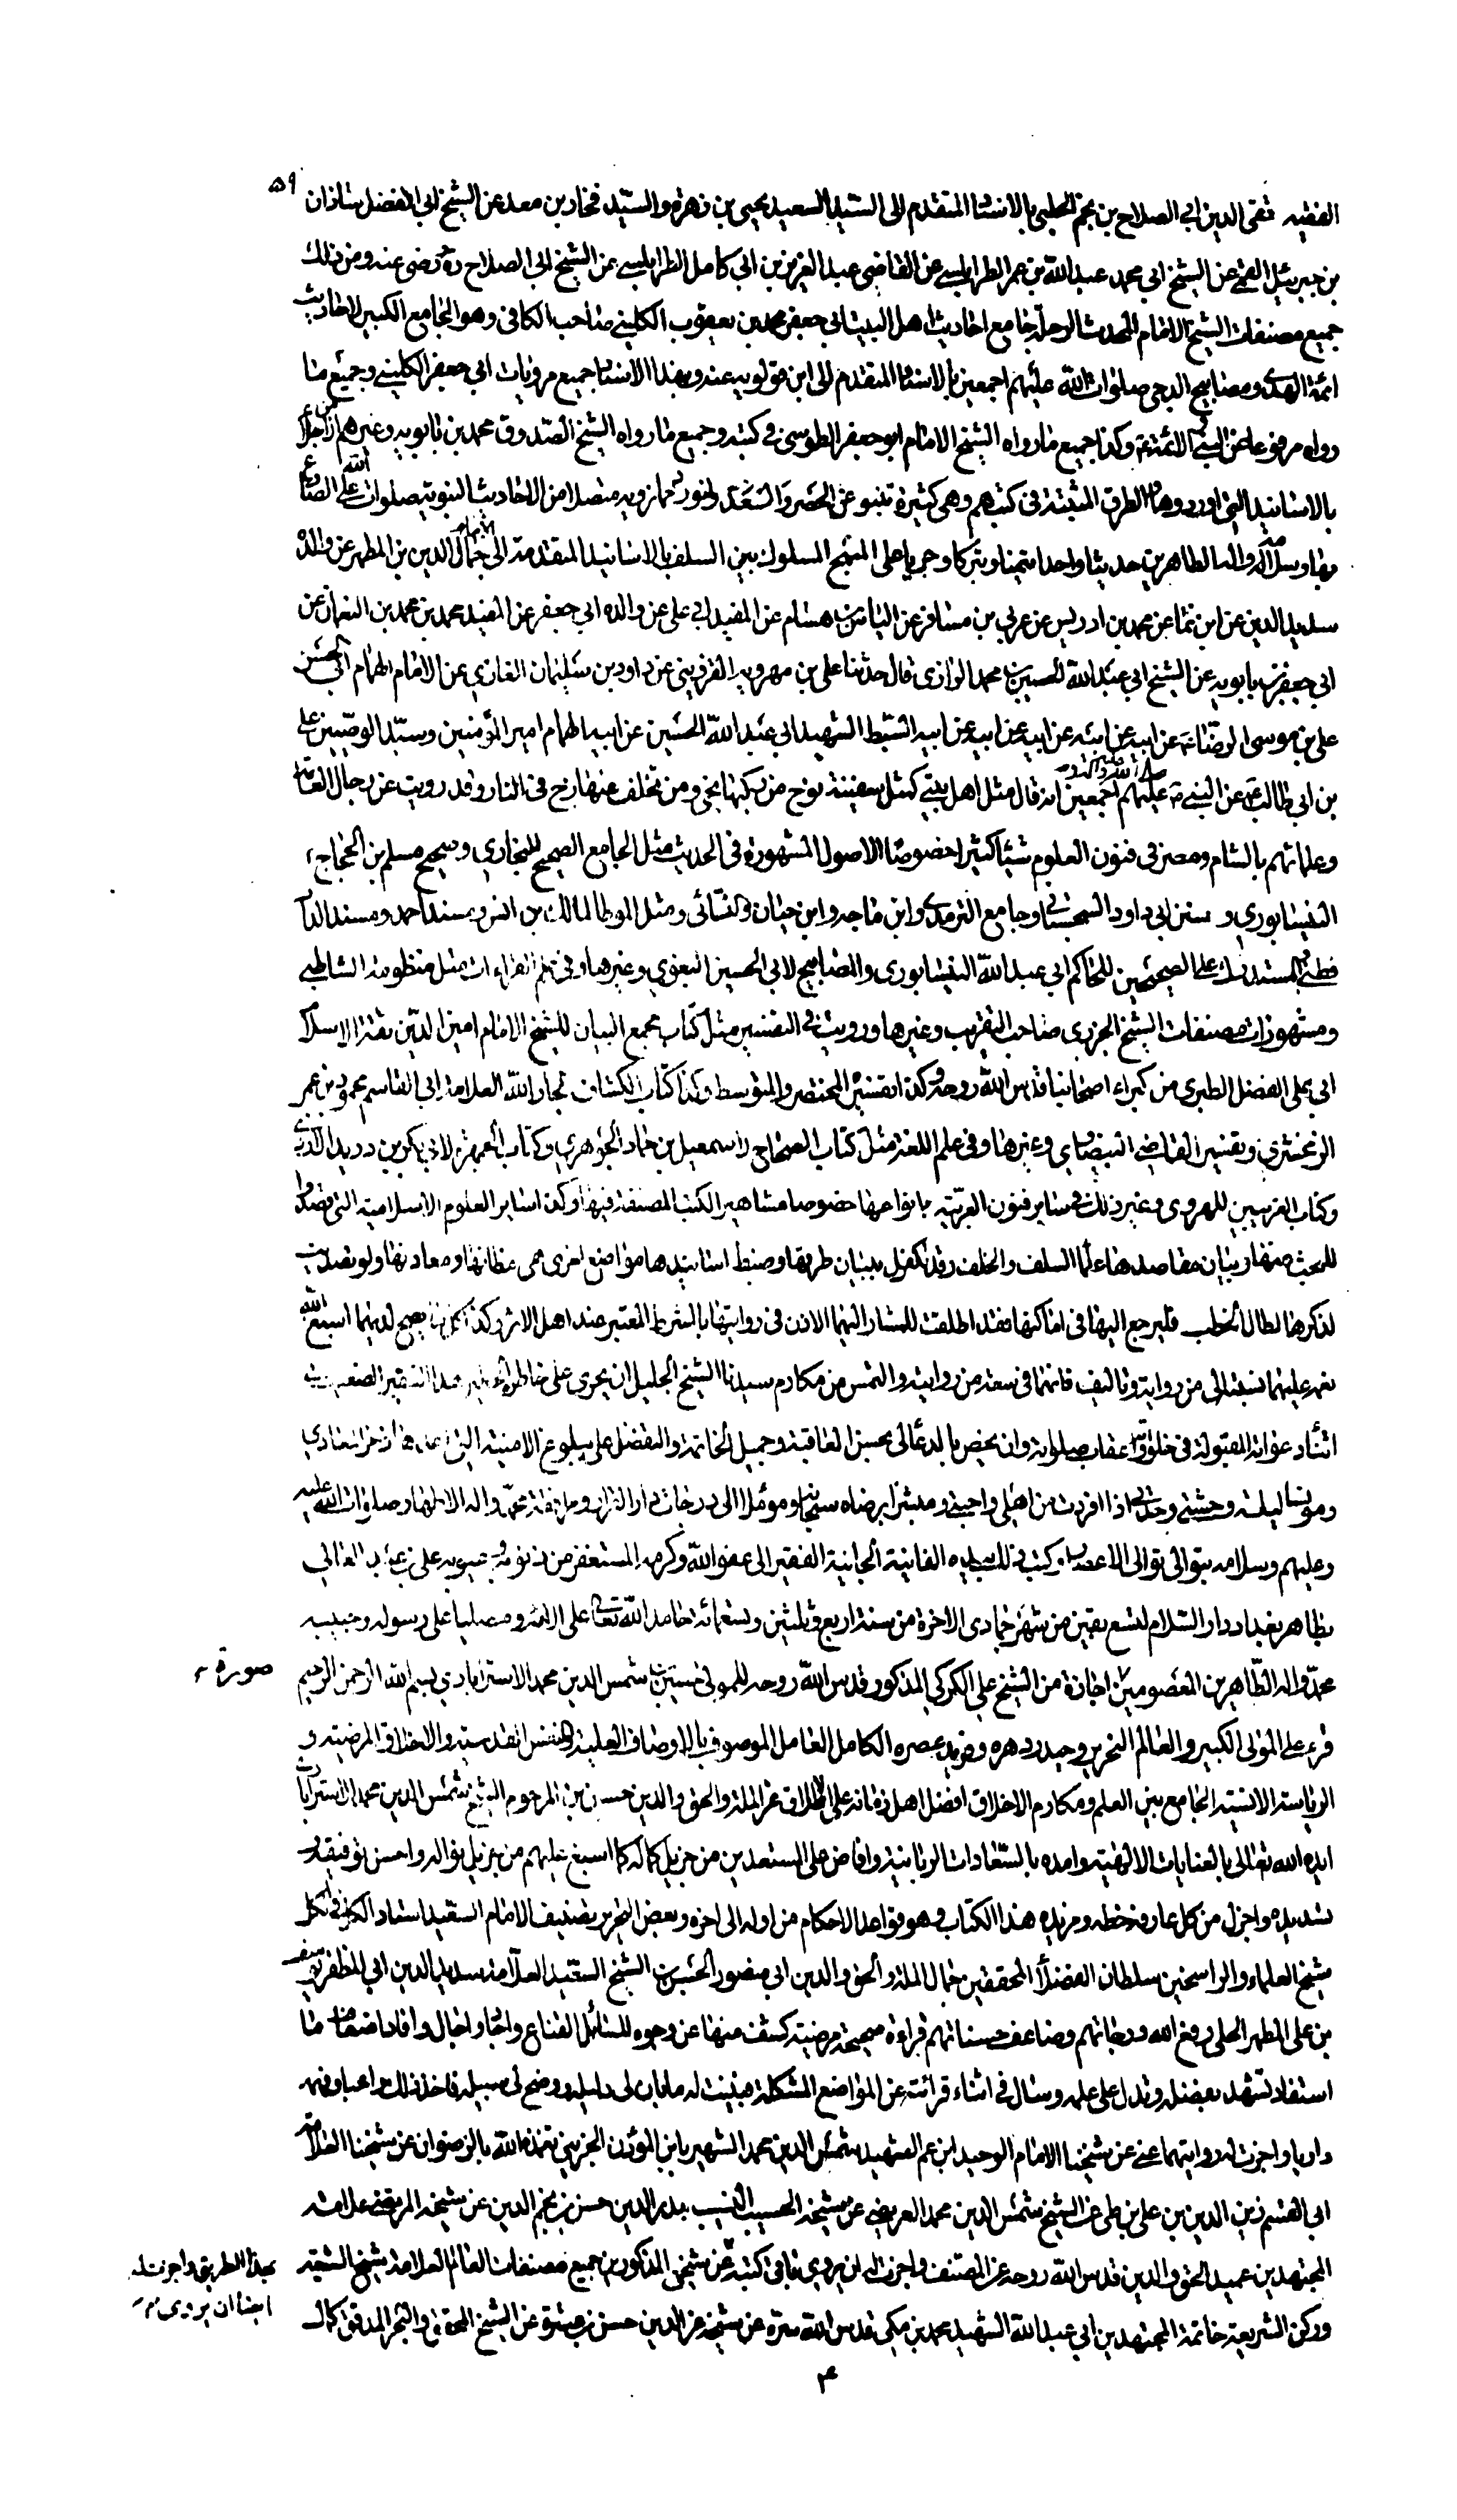 ٥٩
الفقيه تقى الدين ابى الصلاح بن نجم الحلبى بالاسناد المتقدم الى السيد السعيد يحيى بن زهرة والسيد فخار بن معد عن الشيخ ابى الفضل شاذان
بن جبرئيل القمى عن الشيخ ابى محمد عبد الله بن عمر الطرابلسى عن القاضى عبد العزيز بن ابى كامل الطرابلسى عن الشيخ ابى الصلاح رضى عنه ومن ذلك
جميع مصنفات الشيخ الامام المحدث الرحلة جامع احاديث اهل البيت ابى جعفر محمد بن يعقوب الكلينى صاحب الكافى وهو الجامع الكبير لاحاديث
ائمة الهدى ومصابيح الدجى صلوات الله عليهم اجمعين بالاسناد المتقدم الى ابن قولويه عنه وبهذا الاسناد جميع مرويات ابى جعفر الكلينى وجميع ما
رواه مرفوعا عن النبى الائمة ع وكذا جميع ما رواه الشيخ الامام ابو جعفر الطوسى فى كتبه وجميع ما رواه الشيخ الصدوق محمد بن بابويه وغيرهم
بالاسانيد التى اوردوها والطرق المثبتة فى كتبهم وهى كثيرة تنبو عن الحصر والتعد ولنورد مما نرويه متصلا من الاحاديث النبوية صلوات الله على الصادع
بها وسلامه واله الطاهرين حديثا واحدا تيمنا وتبركا وجريا على المنهج المسلوك بين السلف بالاسانيد المتقدمة الى الامام جمال الدين بن المطهر عن والده
سديد الدين عن ابن نما عن محمد بن ادريس عن عربى بن مسافر عن الياس بن هشام عن المفيد ابى على عن والده ابى جعفر عن المفيد محمد بن محمد بن النعمان عن
ابى جعفر بن بابويه عن الشيخ ابى عبد الله الحسين بن محمد الرازى قال حدثنا على بن مهرويه القزوينى عن داود بن سليمان الغازى عن الامام الهمام ابى الحسن
على بن موسى الرضا ع عن ابيه عن ابيه عن ابيه عن ابيه عن ابيه السبط الشهيد ابى عبد الله الحسين عن ابيه الهمام امير المؤمنين وسيد الوصيين على
بن ابى طالب عن النبى عليهم اجمعين انه قال مثل اهل بيتى كمثل سفينة نوح من ركبها نجى ومن تخلف عنها زخ فى النار وقد رويت عن رجال العامة
وعلمائهم بالشام ومصر فى فنون العلوم شيئا كثيرا خصوصا الاصول المشهورة فى الحديث مثل الجامع الصحيح للبخارى وصحيح مسلم بن الحجاج
النيسابورى و سنن ابى داود السجستانى وجامع الترمذى وابن ماجه وابن حبان والنسائى ومثل الموطا لمالك بن انس ومسند احمد ومسند الدار
قطنى المستدرك على الصحيحين للحاكم ابى عبد الله النيسابورى والمصابيح لابى الحسين البغوى وغيرها وفى علم القراءات مثل منظومة الشاطبى
ومشهورات مصنفات الشيخ الجزرى صاحب التقريب وغيرها ورويت فى التفسير مثل كتاب مجمع البيان للشيخ الامام امين الدين ثقة الاسلام
ابى على الفضل الطبرى من كبراء اصحابنا قدس الله روحه وكذا تفسيره المختصر والمتوسط وكذا كتاب الكشاف لجار الله العلامة ابى القاسم محمود بن عمر
الزمخشرى وتفسير القاضى البيضاوى وغيرها وفى علم اللغة مثل كتاب الصحاح لاسمعيل بن حماد الجوهرى وكتاب الجمهرة لابى بكر بن دريد الازدى
وكتاب الغريبين للهروى وغير ذلك وساير فنون العربية بانواعها خصوصا مشاهير الكتب المصنفة فيها وكذا ساير العلوم الاسلامية التى تصدوا
للبحث عنها وبيان مقاصدها علماء السلف والخلف وقد تكفل ببيان طرقها وضبط اسانيدها مواضع اخرى هى مظانها ومعادنها ولو تصديت
لذكرها لطال الخطب فليرجع اليها فى اماكنها فقد اطلقت للمشار اليهما الاذن فى روايتها بالشرط المعتبر عند اهل الاثر وكذا يصح لديهما اسبغ الله
نعمه عليهما نسبته الى من رواية وتاليف فانهما فى سعة من روايته والتمس من مكارم سيدنا الشيخ الجليل ان يجرى على خاطره هذا الفقير الضعيف
اثناء دعواته المقبولة فى خلوته واعقاب صلواته وان يخص بالدعاء الى بحسن العاقبة وجميل الخاتمة والتفضل على ببلوغ الامنية التى
ومونسا ليلة وحشتى وحدتى اذا افردت من اهلى واحبتى ومبشرا برضاه سبحانه ومؤملا الى درجات دار القرار ومرافقة محمد واله الاطهار صلوات الله عليه
وعليهم وسلامه بتوالى الاعصار وكتب ذلك بيده الفانية الجانية الفقير الى عفو الله وكرمه المستغفر من ذنوبه وعيوبه على بن عبد العالى
بظاهر بغداد دار السلام لتسع بقين من شهر جمادى الاخرة من سنة اربع وثلثين وتسعمائة حامدا لله تعالى على الائه ومصليا على رسوله وحبيبه
محمد واله الطاهرين المعصومين اجازة من الشيخ على الكركى المذكور قدس الله روحه للمولى حسين بن شمس الدين محمد الاسترابادى بسم الله الرحمن الرحيم
صورة
قرء على المولى الكبير والعالم النحرير وحيد دهره وفريد عصره الكامل العامل الموصوف بالاوصاف العلية والنفس القدسية والاخلاق المرضية و
الرياسة الانسية الجامع بين العلم ومكارم الاخلاق افضل اهل زمانه على الاطلاق عز الملة والحق والدين حسين بن المرحوم الشيخ شمس الدين محمد الاسترابادى
ايده الله تعالى بالعنايات الالهية وامده بالسعادات الربانية وافاض على المستعدين من جزيل كماله كما اسبغ عليهم من جزيل نواله واحسن توفيقه
تسديده واجزل من كل عارفة حظه ومزيده هذا الكتاب وهو قواعد الاحكام من اوله الى اخره وبعض التحرير تصنيف الامام السعيد استاد الكل فى الكل
شيخ العلماء والراسخين سلطان الفضلاء المحققين جمال الملة والحق والدين ابى منصور الحسن بن الشيخ السعيد العلامة سديد الدين ابى المظفر يوسف
بن على المطهر الحلى رفع الله درجاتهم وضاعف حسناتهم قراءة صحيحة مرضية كشف منها عن وجوه المسائل القناع واجاد واجال وافاد اضعاف ما
استفاد تشهد بفضله وتدل على علمه وسال فى اثناء قرائته عن المواضع المشكلة فبينت له ما بان لى دليله ووضح لى سبيله فاخذ ذلك واعيا وفهمه
داريا واجزت له روايتهما عنى عن شيخنا الامام الوحيد ابن عم الشهيد شمس الدين محمد الشهير بابن المؤذن الجزينى تغمده الله بالرضوان عن شيخنا العلامة
ابى القسم زين الدين بن على بن طى عن الشيخ شمس الدين محمد العريضى عن شيخه الحسيب النسيب بدر الدين حسن بن نجم الدين عن شيخه المرتضى علامة
المجتهدين عميد الحق والدين قدس الله روحه عن المصنف واجزت له ان يروى باقى كتبه عن شيخى المذكور بن جميع مصنفات العالم العلامة شيخ الشيعة
بهذا الطريق واجزت له
ايضا ان يروى
وركن الشريعة خاتمة المجتهدين ابى عبد الله الشهيد محمد بن مكى قدس الله سره عن شيخه عز الدين حسن بن عشرة عن الشيخ المحقق والحبر المدقق كمال